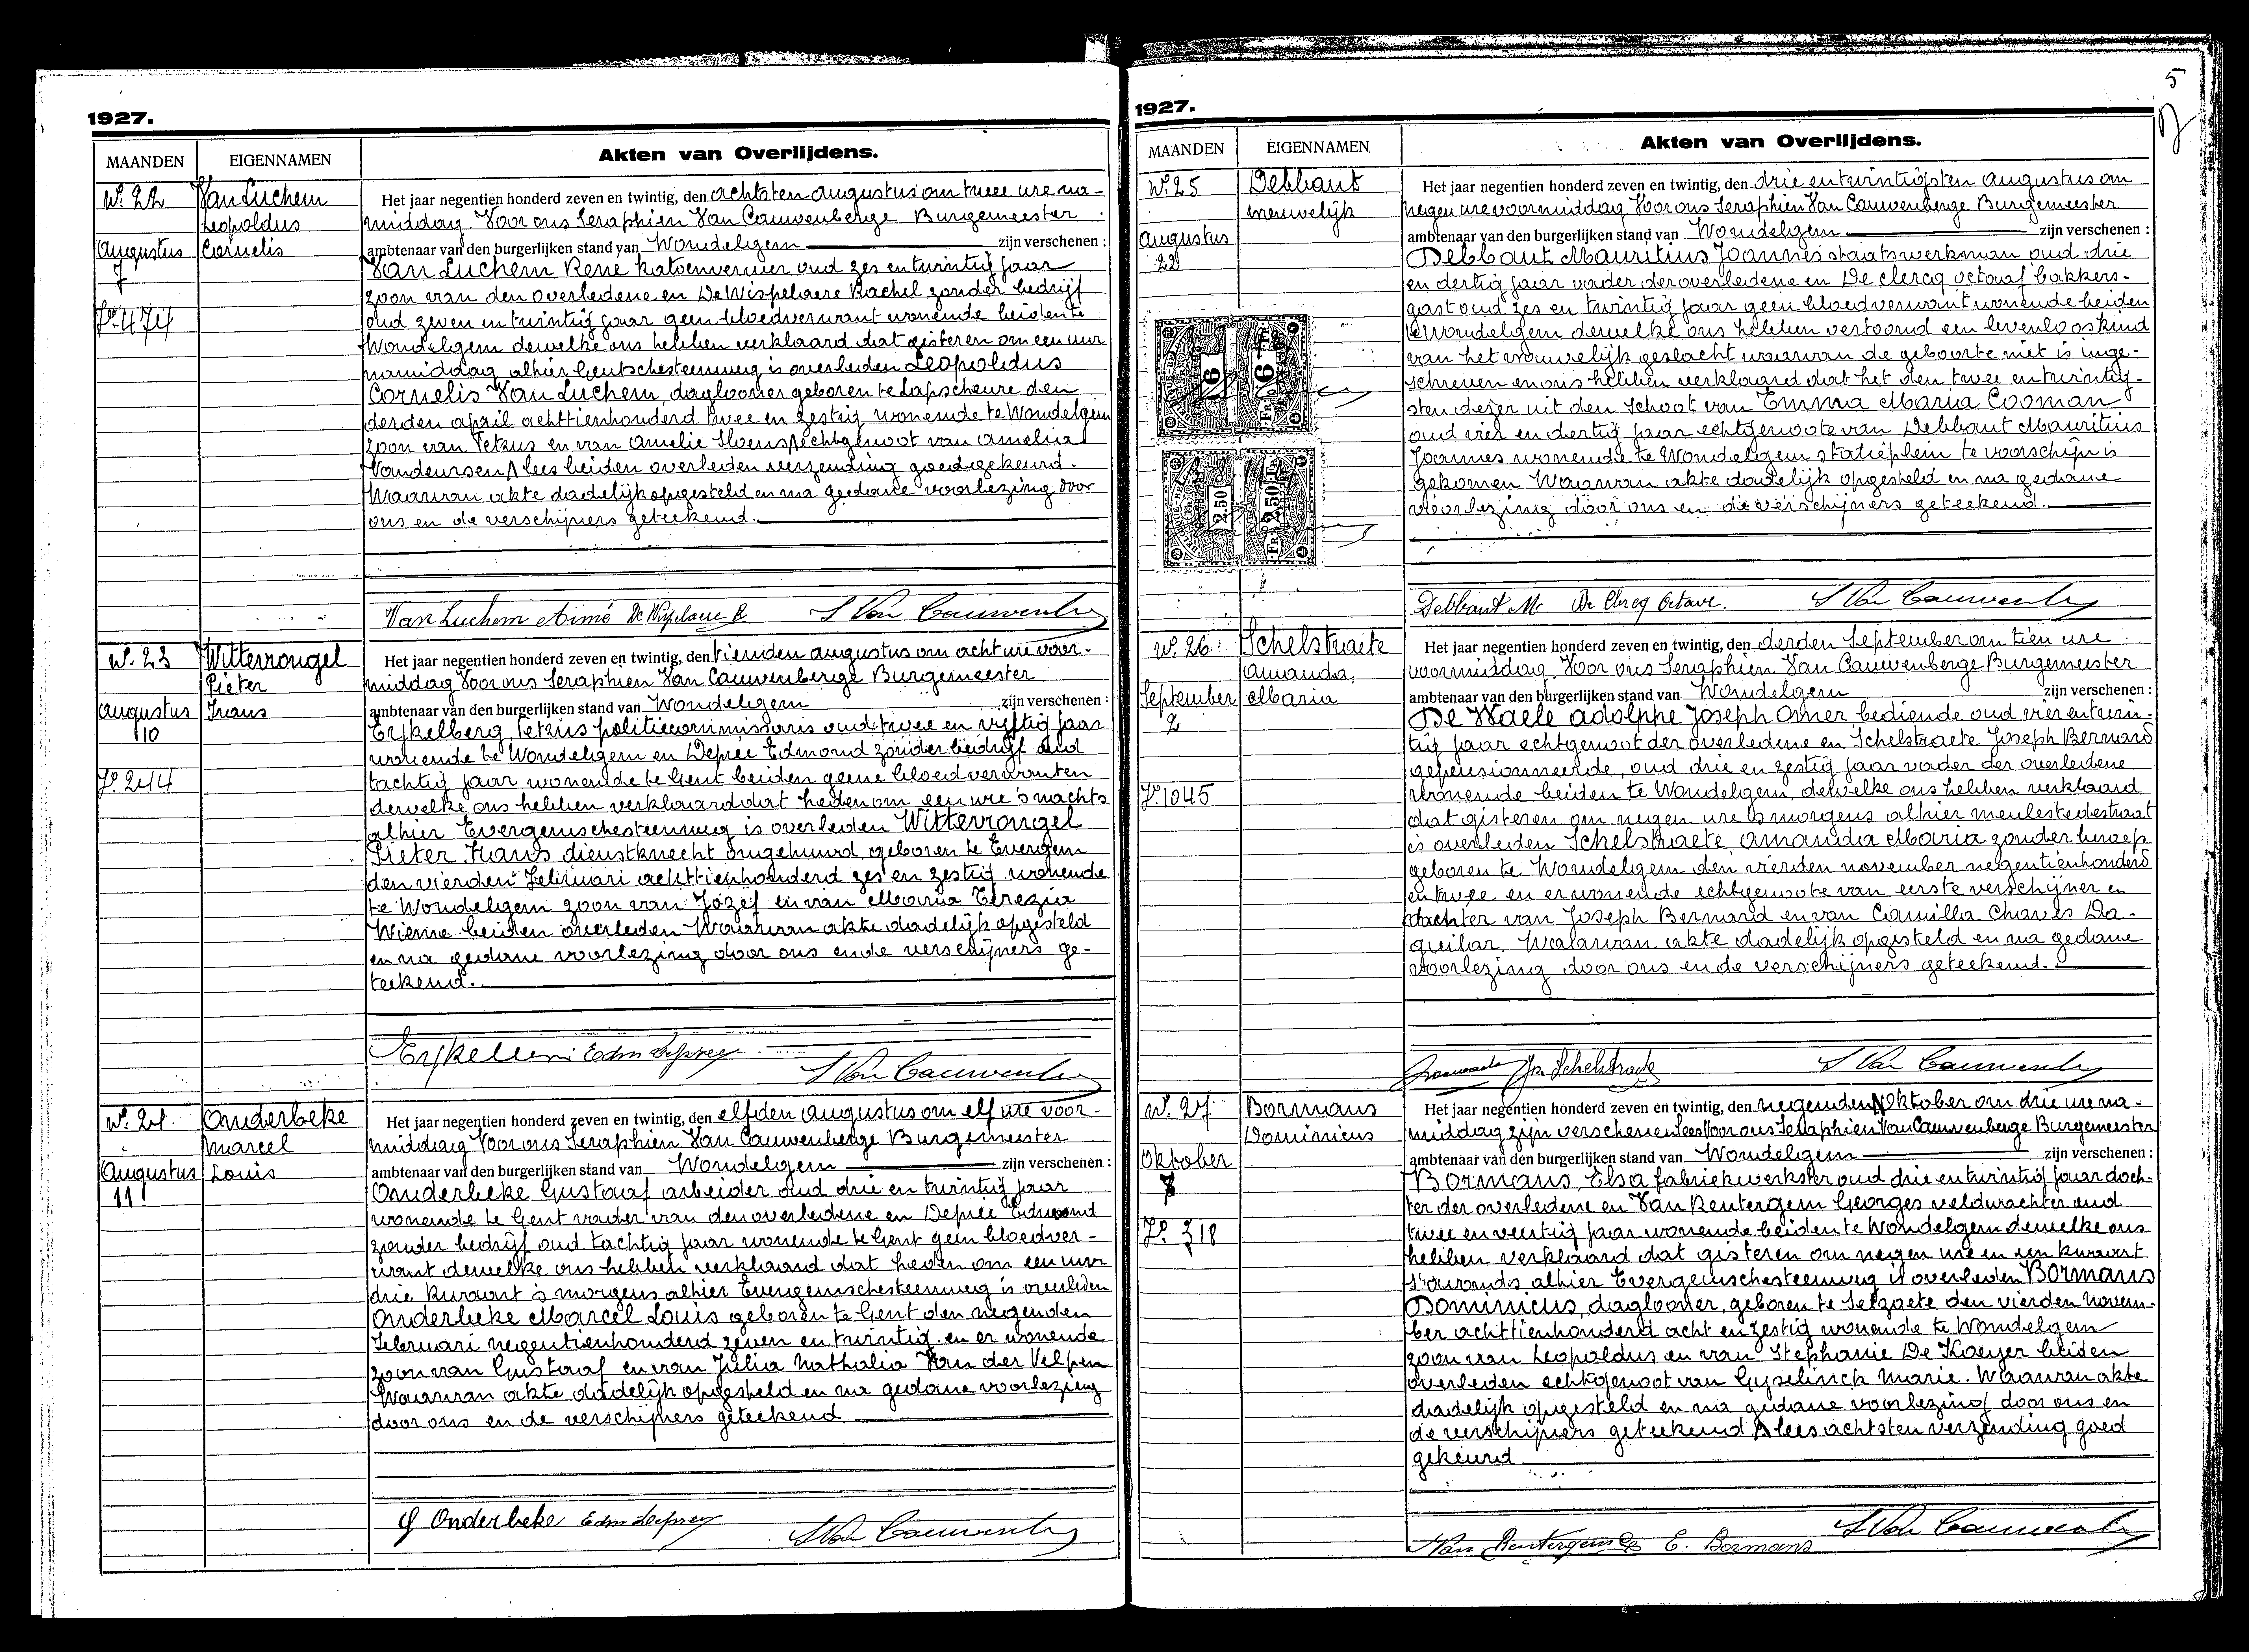 1927.
MAANDEN
EIGENNAMEN
Akten van Overlijdens.
N°. 22
Van Luchem
Leopoldus
Augustus
Cornelis
7
J°. 474
Het jaar negentien honderd zeven en twintig, den achtsten augustus om twee ure na-
middag Voor ons Seraphien Van Cauwenberge Burgemeester
ambtenaar van den burgerlijken stand van Wondelgem zijn verschenen :
Van Luchem René katoenwever oud zes en twintig jaar
zoon van den overledene en De Wispelaere Rachel zonder bedrijf
oud zeven en twintig jaar geen bloedverwant wonende beiden te
Wondelgem dewelke ons hebben verklaard dat gisteren om een uur
namiddag alhier Gentschesteenweg is overleden Leopoldus
Cornelis Van Luchem, daglooner geboren te Lapscheure den
derden april achttienhonderd twee en zestig wonende te Wondelgem
zoon van Petrus en van Amelie echtgenoot van Amelia
Vandeursen lees beiden overleden verzending goedgekeurd.
Waarvan akte dadelijk opgesteld en na gedane voorlezing door
ons en de verschijners geteekend.
Van Luchem Aimé De Wispelaere R S Van Cauwenberge
N°. 23
Wittevrongel
Pieter
Augustus
Frans
10
J°. 244
Het jaar negentien honderd zeven en twintig, den tienden augustus om acht ure voor-
middag Voor ons Seraphien Van Cauwenberge Burgemeester
ambtenaar van den burgerlijken stand van Wondelgem zijn verschenen :
Eijkelberg Petrus politiecommissaris oud twee en vijftig jaar
wonende te Wondelgem en Deprée Edmond zonder bedrijf oud
tachtig jaar wonende te Gent beiden geene bloedverwanten
dewelke ons hebben verklaard dat heden om een ure 's nachts
alhier Evergemschesteenweg is overleden Wittevrongel
Pieter Frans dienstknecht ongehuwd geboren te Evergem
den vierden Februari achttienhonderd zes en zestig wonende
te Wondelgem zoon van Jozef en van Maria Terezia
Wieme beiden overleden Waarvan akte dadelijk opgesteld
en na gedane voorlezing door ons en de verschijners ge-
teekend.
Edm Deprey
S Van Cauwenberge
N°. 24.
Onderbeke
Marcel
Augustus
Louis
11
Het jaar negentien honderd zeven en twintig, den elfden augustus om elf ure voor-
middag Voor ons Seraphien Van Cauwenberge Burgemeester
ambtenaar van den burgerlijken stand van Wondelgem zijn verschenen :
Onderbeke Gustaaf arbeider oud drie en twintig jaar
wonende te Gent vader van den overledene en Deprée Edmond
zonder bedrijf oud tachtig jaar wonende te Gent geen bloedver-
want dewelke ons hebben verklaard dat heden om een uur
drie kwaart 's morgens alhier Evergemschesteenweg is overleden
Onderbeke Marcel Louis geboren te Gent den negenden
Februari negentienhonderd zeven en twintig en er wonende
zoon van Gustaaf en van Julia Nathalia Van der Velpen
Waarvan akte dadelijk opgesteld en na gedane voorlezing
door ons en de verschijners geteekend
G Onderbeke Edm Deprey S Van Cauwenberge
5
1927.
MAANDEN
EIGENNAMEN
Akten van Overlijdens.
N°. 25
Debbaut
vrouwelijk
Augustus
22
6
6 Fr
2.50
2.50 Fr
Het jaar negentien honderd zeven en twintig, den drie en twintigsten augustus om
negen ure voormiddag Voor ons Seraphien Van Cauwenberge Burgemeester
ambtenaar van den burgerlijken stand van Wondelgem zijn verschenen :
Debbaut Mauritius Joannes staatswerkman oud drie
en dertig jaar vader der overledene en De Clercq Octaaf bakkers-
gast oud zes en twintig jaar geen bloedverwant wonende beiden
te Wondelgem dewelke ons hebben vertoond een levenloos kind
van het vrouwelijk geslacht waarvan de geboorte niet is inge-
schreven en ons hebben verklaard dat het den twee en twintig-
sten dezer uit den schoot van Emma Maria Cooman
oud vier en dertig jaar echtgenoote van Debbaut Mauritius
Joannes wonende te Wondelgem statieplein te voorschijn is
gekomen Waarvan akte dadelijk opgesteld en na gedane
voorlezing door ons en de verschijners geteekend.
Debbaut M. De Clercq Octave. S Van Cauwenberge
N°. 26.
Schelstraete
Amanda
September
Maria
2
J°. 1045
Het jaar negentien honderd zeven en twintig, den derden September om tien ure
voormiddag Voor ons Seraphien Van Cauwenberge Burgemeester
ambtenaar van den burgerlijken stand van Wondelgem zijn verschenen :
De Waele Adolphe Joseph Omer bediende oud vier en twin-
tig jaar echtgenoot der overledene en Schelstraete Joseph Bernard
gepensionneerde, oud drie en zestig jaar vader der overledene
wonende beiden te Wondelgem dewelke ons hebben verklaard
dat gisteren om negen ure 's morgens alhier meulestedestraat
is overleden Schelstraete Amanda Maria zonder beroep
geboren te Wondelgem den vierden november negentienhonderd
en twee en er wonende echtgenoote van eerste verschijner en
dochter van Joseph Bernard en van Camilla Chaves Da-
guilar. Waarvan akte dadelijk opgesteld en na gedane
voorlezing door ons en de verschijners geteekend.
Jos Schelstraete S Van Cauwenberge
N°. 27
Bormans
Dominicus
Oktober
7
J°. 318
Het jaar negentien honderd zeven en twintig, den negenden Oktober om drie ure na-
middag zijn verschenen lees Voor ons Seraphien Van Cauwenberge Burgemeester
ambtenaar van den burgerlijken stand van Wondelgem zijn verschenen :
Bormans, Elsa fabriekwerkster oud drie en twintig jaar doch-
ter der overledene en Van Rentergem Georges veldwachter oud
twee en veertig jaar wonende beiden te Wondelgem dewelke ons
hebben verklaard dat gisteren om negen ure en een kwaart
s'avonds alhier Evergemschesteenweg is overleden Bormans
Dominicus, daglooner, geboren te Selzaete den vierden novem-
ber achttienhonderd acht en zestig wonende te Wondelgem
zoon van Leopoldus en van Stephanie De Kaeyer beiden
overleden echtgenoot van Gyselinck Marie. Waarvan akte
dadelijk opgesteld en na gedane voorlezing door ons en
de verschijners geteekend lees achtsten verzending goed
gekeurd
S Van Cauwenberge
Van Rentergem G E. Bormans